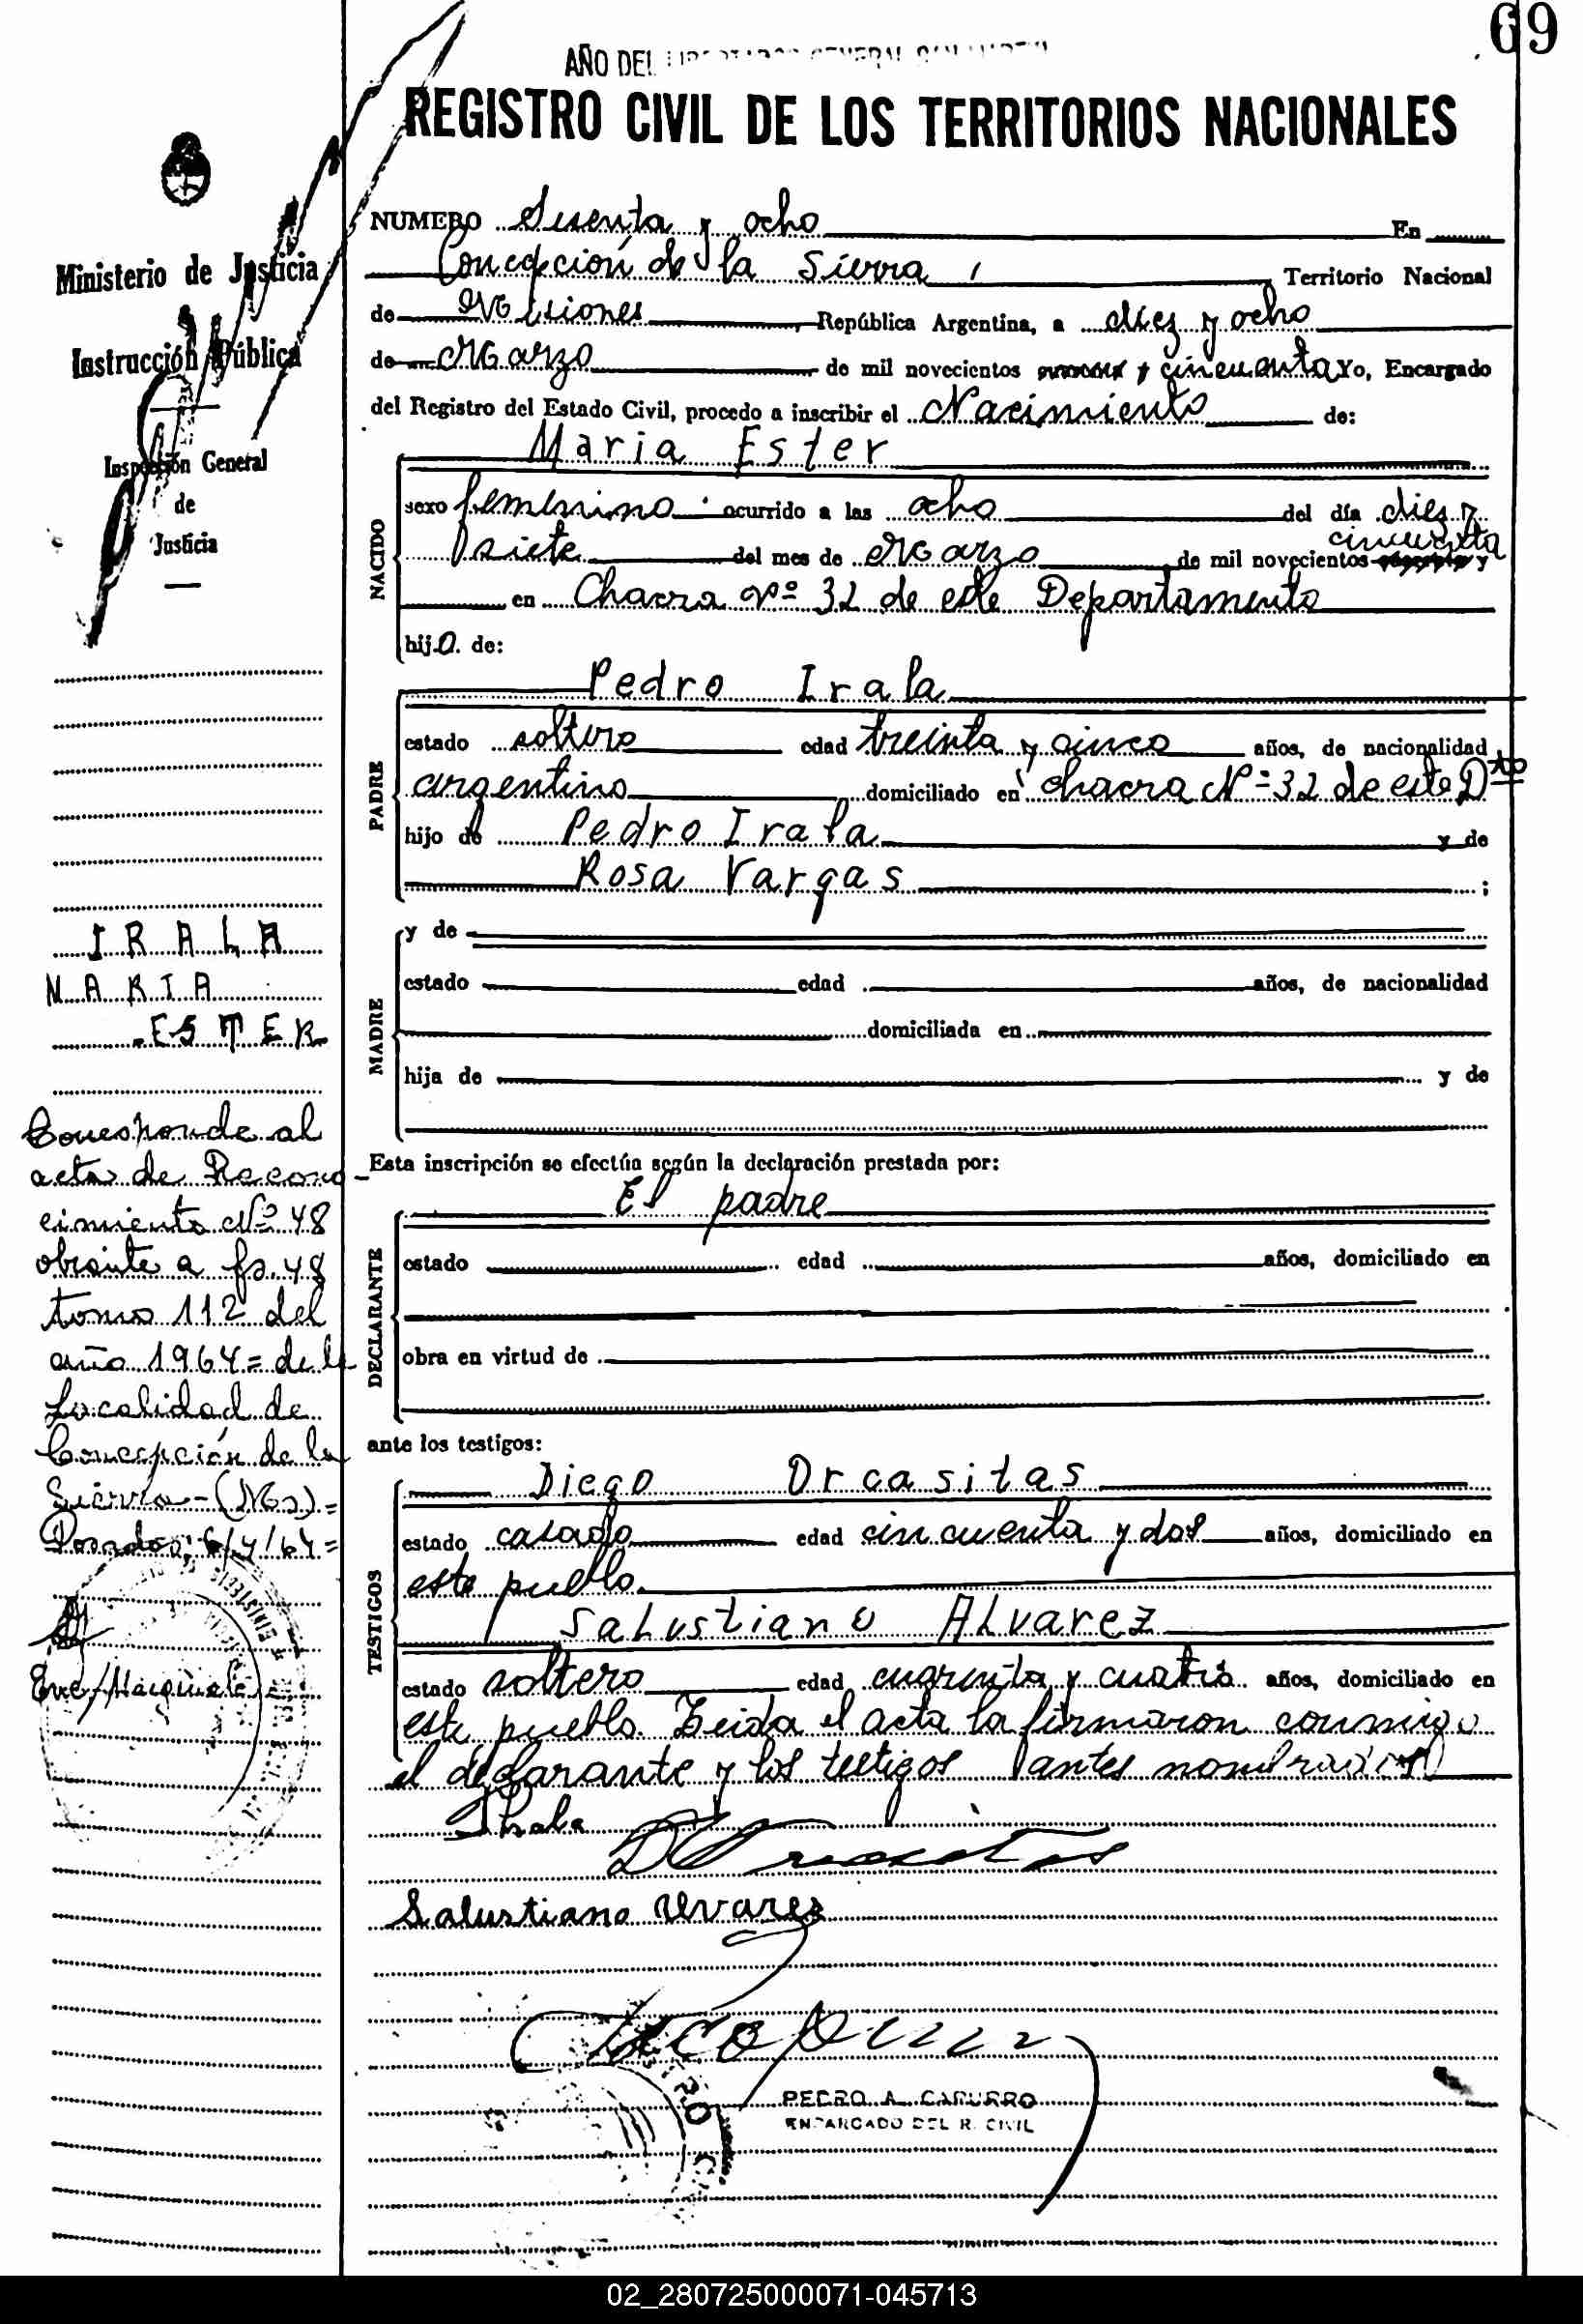 69
AÑO DEL LIBERTADOR GENERAL SAN MARTIN
REGISTRO CIVIL DE LOS TERRITORIOS NACIONALES
Ministerio de Justicia
Instrucción Pública
Inspección General
de
Justicia
NUMERO Sesenta y ocho En
Concepción de la Sierra, Territorio Nacional
de Misiones, República Argentina, a diez y ocho
de Marzo de mil novecientos y cincuenta Yo, Encargado
del Registro del Estado Civil, procedo a inscribir el Nacimiento de:
NACIDO
Maria Ester
sexo femenino ocurrido a las ocho del día diez y
siete del mes de Marzo de mil novecientos cincuenta y
en Chacra Nº 32 de este Departamento
hija de:
PADRE
Pedro Irala
estado soltero edad treinta y cinco años, de nacionalidad
argentino domiciliado en chacra Nº 32 de este Dto
hijo de Pedro Irala y de
Rosa Vargas ;
MADRE
y de
estado edad años, de nacionalidad
domiciliada en
hija de y de
Esta inscripción se efectúa según la declaración prestada por:
DECLARANTE
El padre
estado edad años, domiciliado en
obra en virtud de
ante los testigos:
TESTIGOS
Diego Orcasitas
estado casado edad cincuenta y dos años, domiciliado en
este pueblo.
Salustiano Alvarez
estado soltero edad cuarenta y cuatro años, domiciliado en
este pueblo. Leida el acta la firmaron conmigo
el declarante y los testigos antes nombrados
PIrala
Salustiano Alvarez
PEDRO A. CAPURRO
ENCARGADO DEL R. CIVIL
IRALA
MARIA
ESTER
Corresponde al
acta de Recono
cimiento Nº 48
obrante a fs. 48
tomo 112 del
año 1964= de la
Localidad de
Concepción de la
Sierra-(Mns)=
Posadas, 6/4/64=
02_280725000071-045713